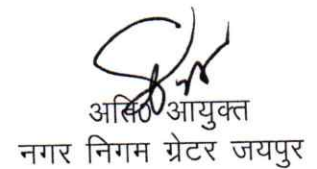 अति० आयुक्त
नगर निगम ग्रेटर जयपुर